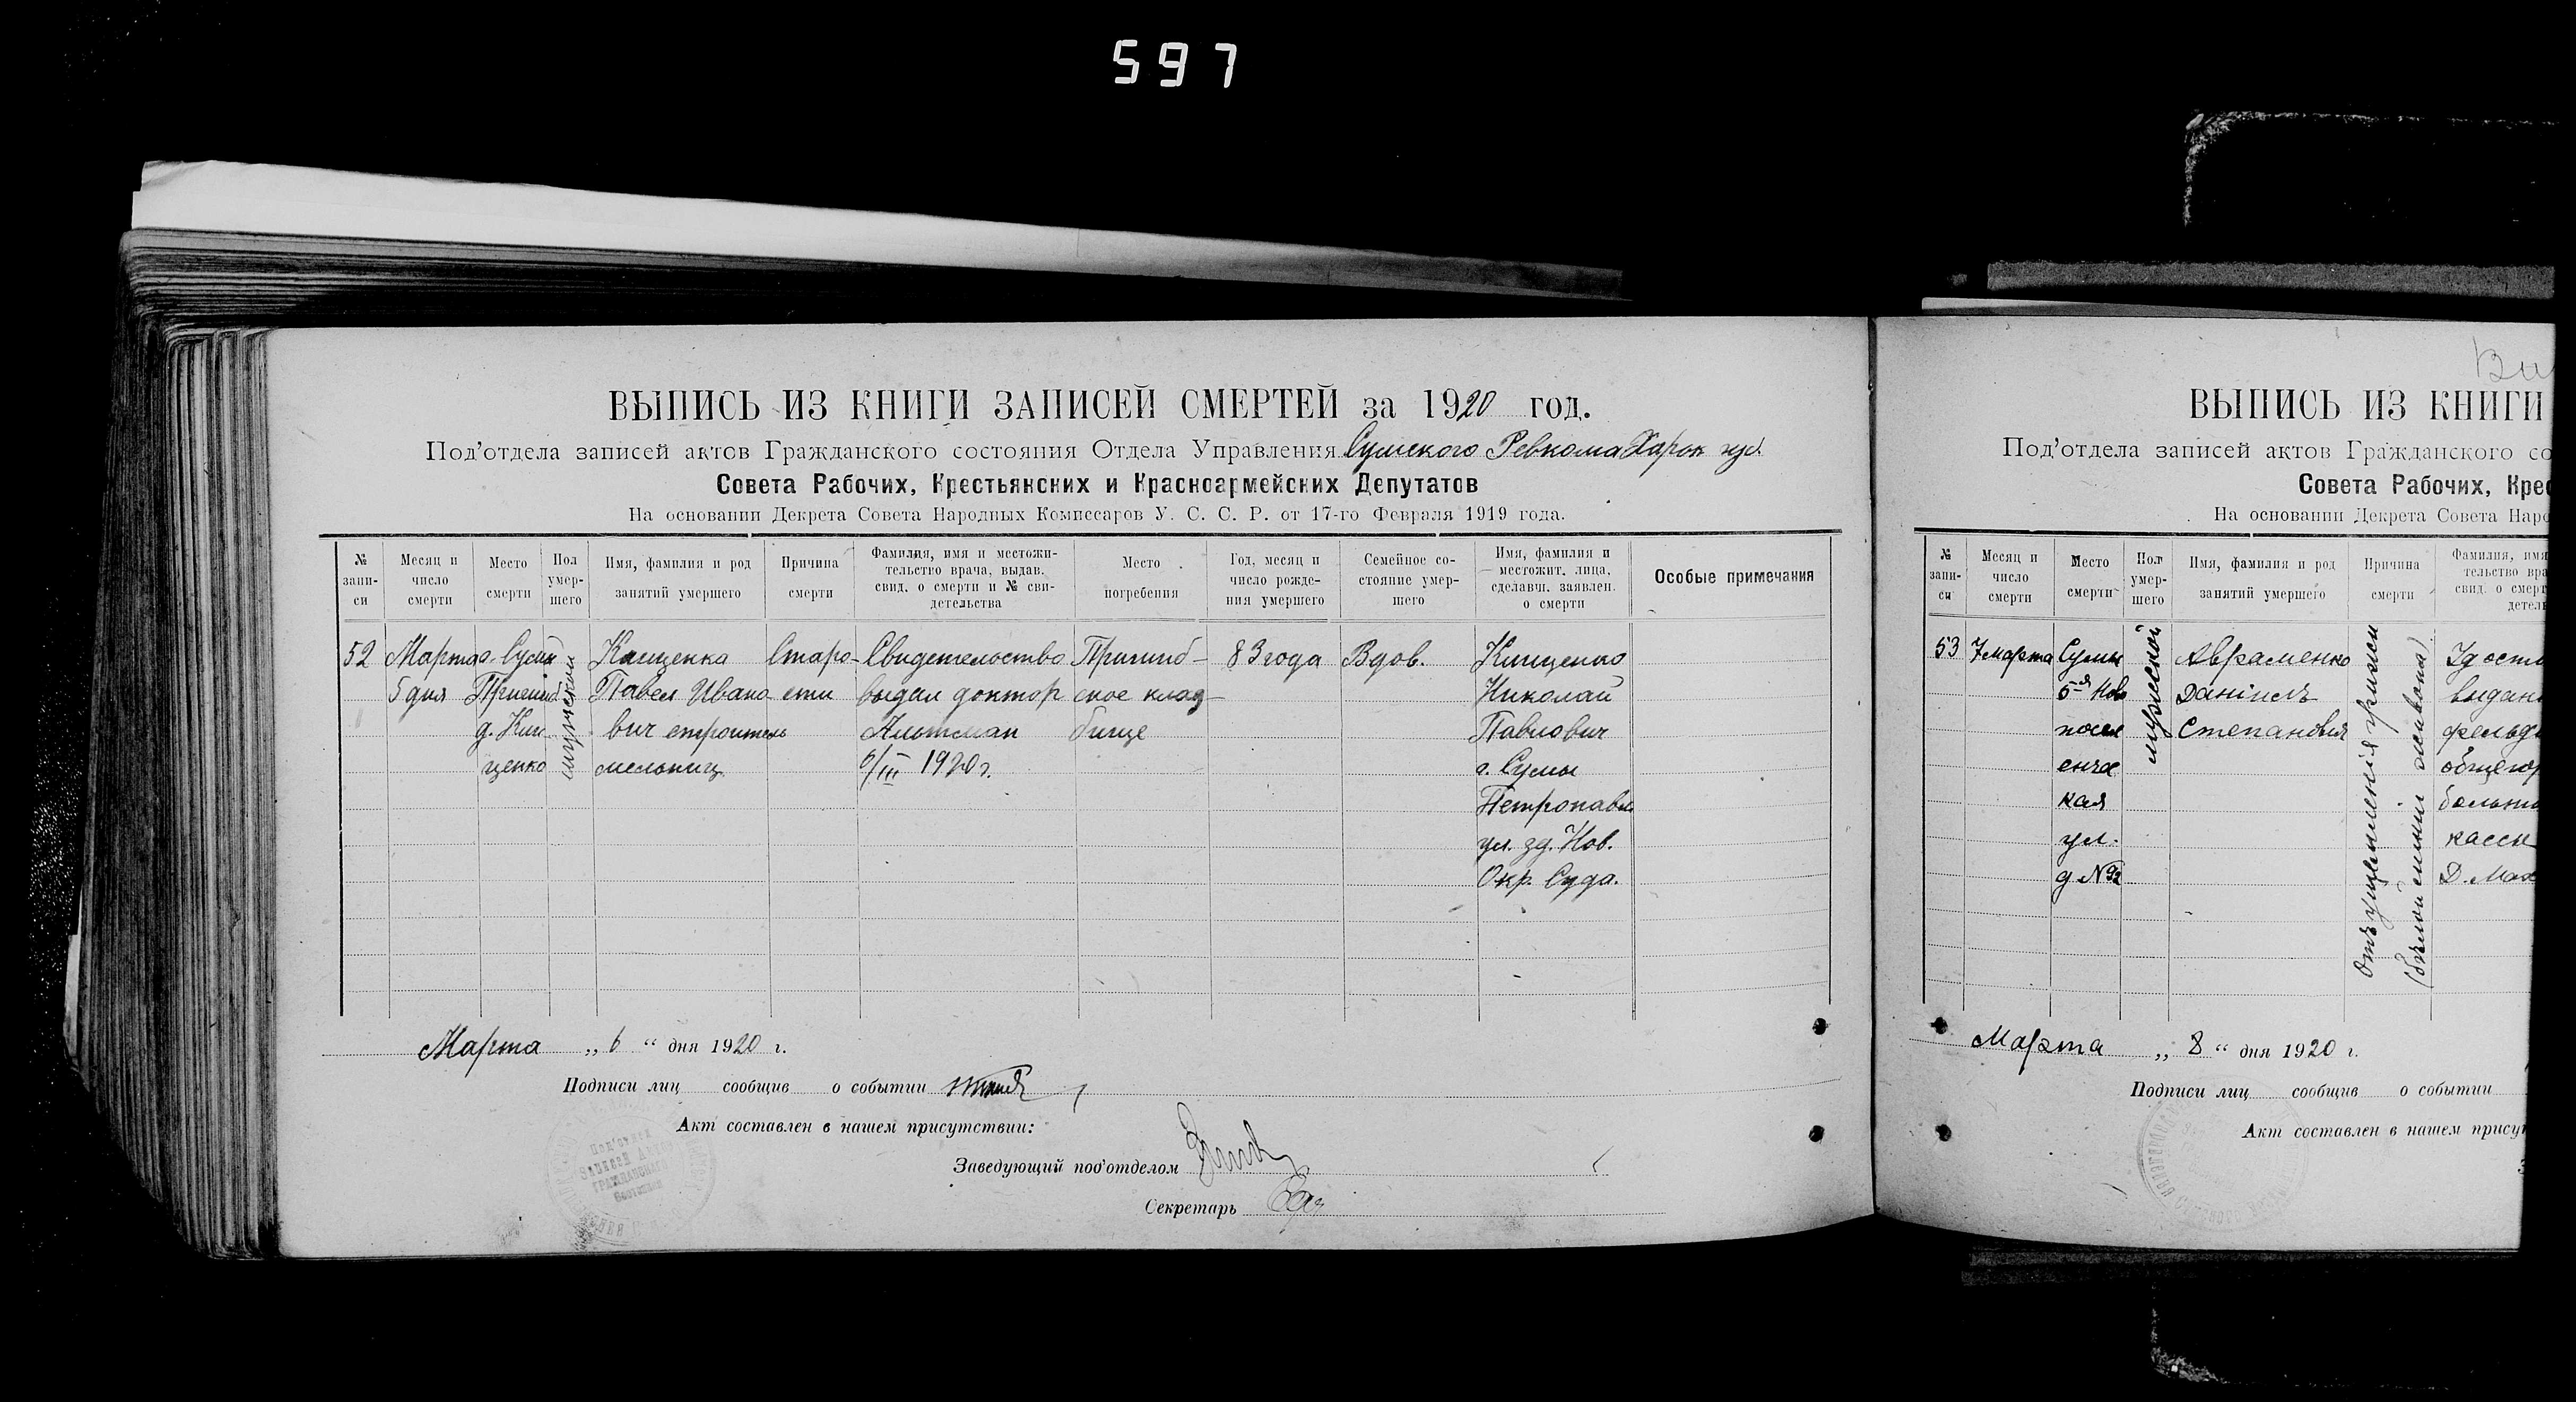 597
ВЫПИСЬ ИЗ КНИГИ ЗАПИСЕЙ СМЕРТЕЙ за 1920 год.
Под'отдела записей актов Гражданского состояния Отдела Управления Сумского Ревкома Харьк губ.
Совета Рабочих, Крестьянских и Красноармейских Депутатов
На основании Декрета Совета Народных Комиссаров У. С. С. Р. от 17-го Февраля 1919 года.
№ запи-си
Месяц и число смерти
Место смерти
Пол умер-шего
Имя, фамилия и род занятий умершего
Причина смерти
Фамилия, имя и местожи-тельство врача, выдав. свид. о смерти и № сви-детельства
Место погребения
Год, месяц и число рожде-ния умершего
Семейное со-стояние умер-шего
Имя, фамилия и местожит. лица, сделавш. заявлен. о смерти
Особые примечания
52
Марта
5 дня
г. Сумы
д. Ки
щенко
мужской
Кищенка
Павел Ивано
вич строитель
мельниц
Старо-
сти
Свидетельство
выдал доктор
Альтман
6/III 1920 г.
ское клад-
бище
83 года
Вдов.
Кищенко
Николай
Павлович
г. Сумы
Петропавл
ул. зд. Нов.
Окр. Суда.
Марта „ 6 “ дня 1920 г.
Подписи лиц сообщив о событии
Акт составлен в нашем присутствии:
Заведующий под'отделом
Секретарь
Под'отдел
Записей Актов
Гражданского
Состояния
ВЫПИСЬ ИЗ КНИГИ
Под'отдела записей актов Гражданского со
Совета Рабочих, Крес
На основании Декрета Совета Наро
№ запи-си
Месяц и число смерти
Место смерти
Пол умер-шего
Имя, фамилия и род занятий умершего
Причина смерти
Фамилия, имя
тельство вра
свид. о смерт
детель
53
7 марта
Сумы
5-я Ново
посел
енче
кая
ул.
д №
мужской
Авраменко
Даніилъ
Степановъ
Отъ ущемленія грыжи
выдан
фельд
общегор
больни
кассы
Д. Мах
Марта „ 8 “ дня 1920 г.
Подписи лиц сообщив о событии
Акт составлен в нашем присут